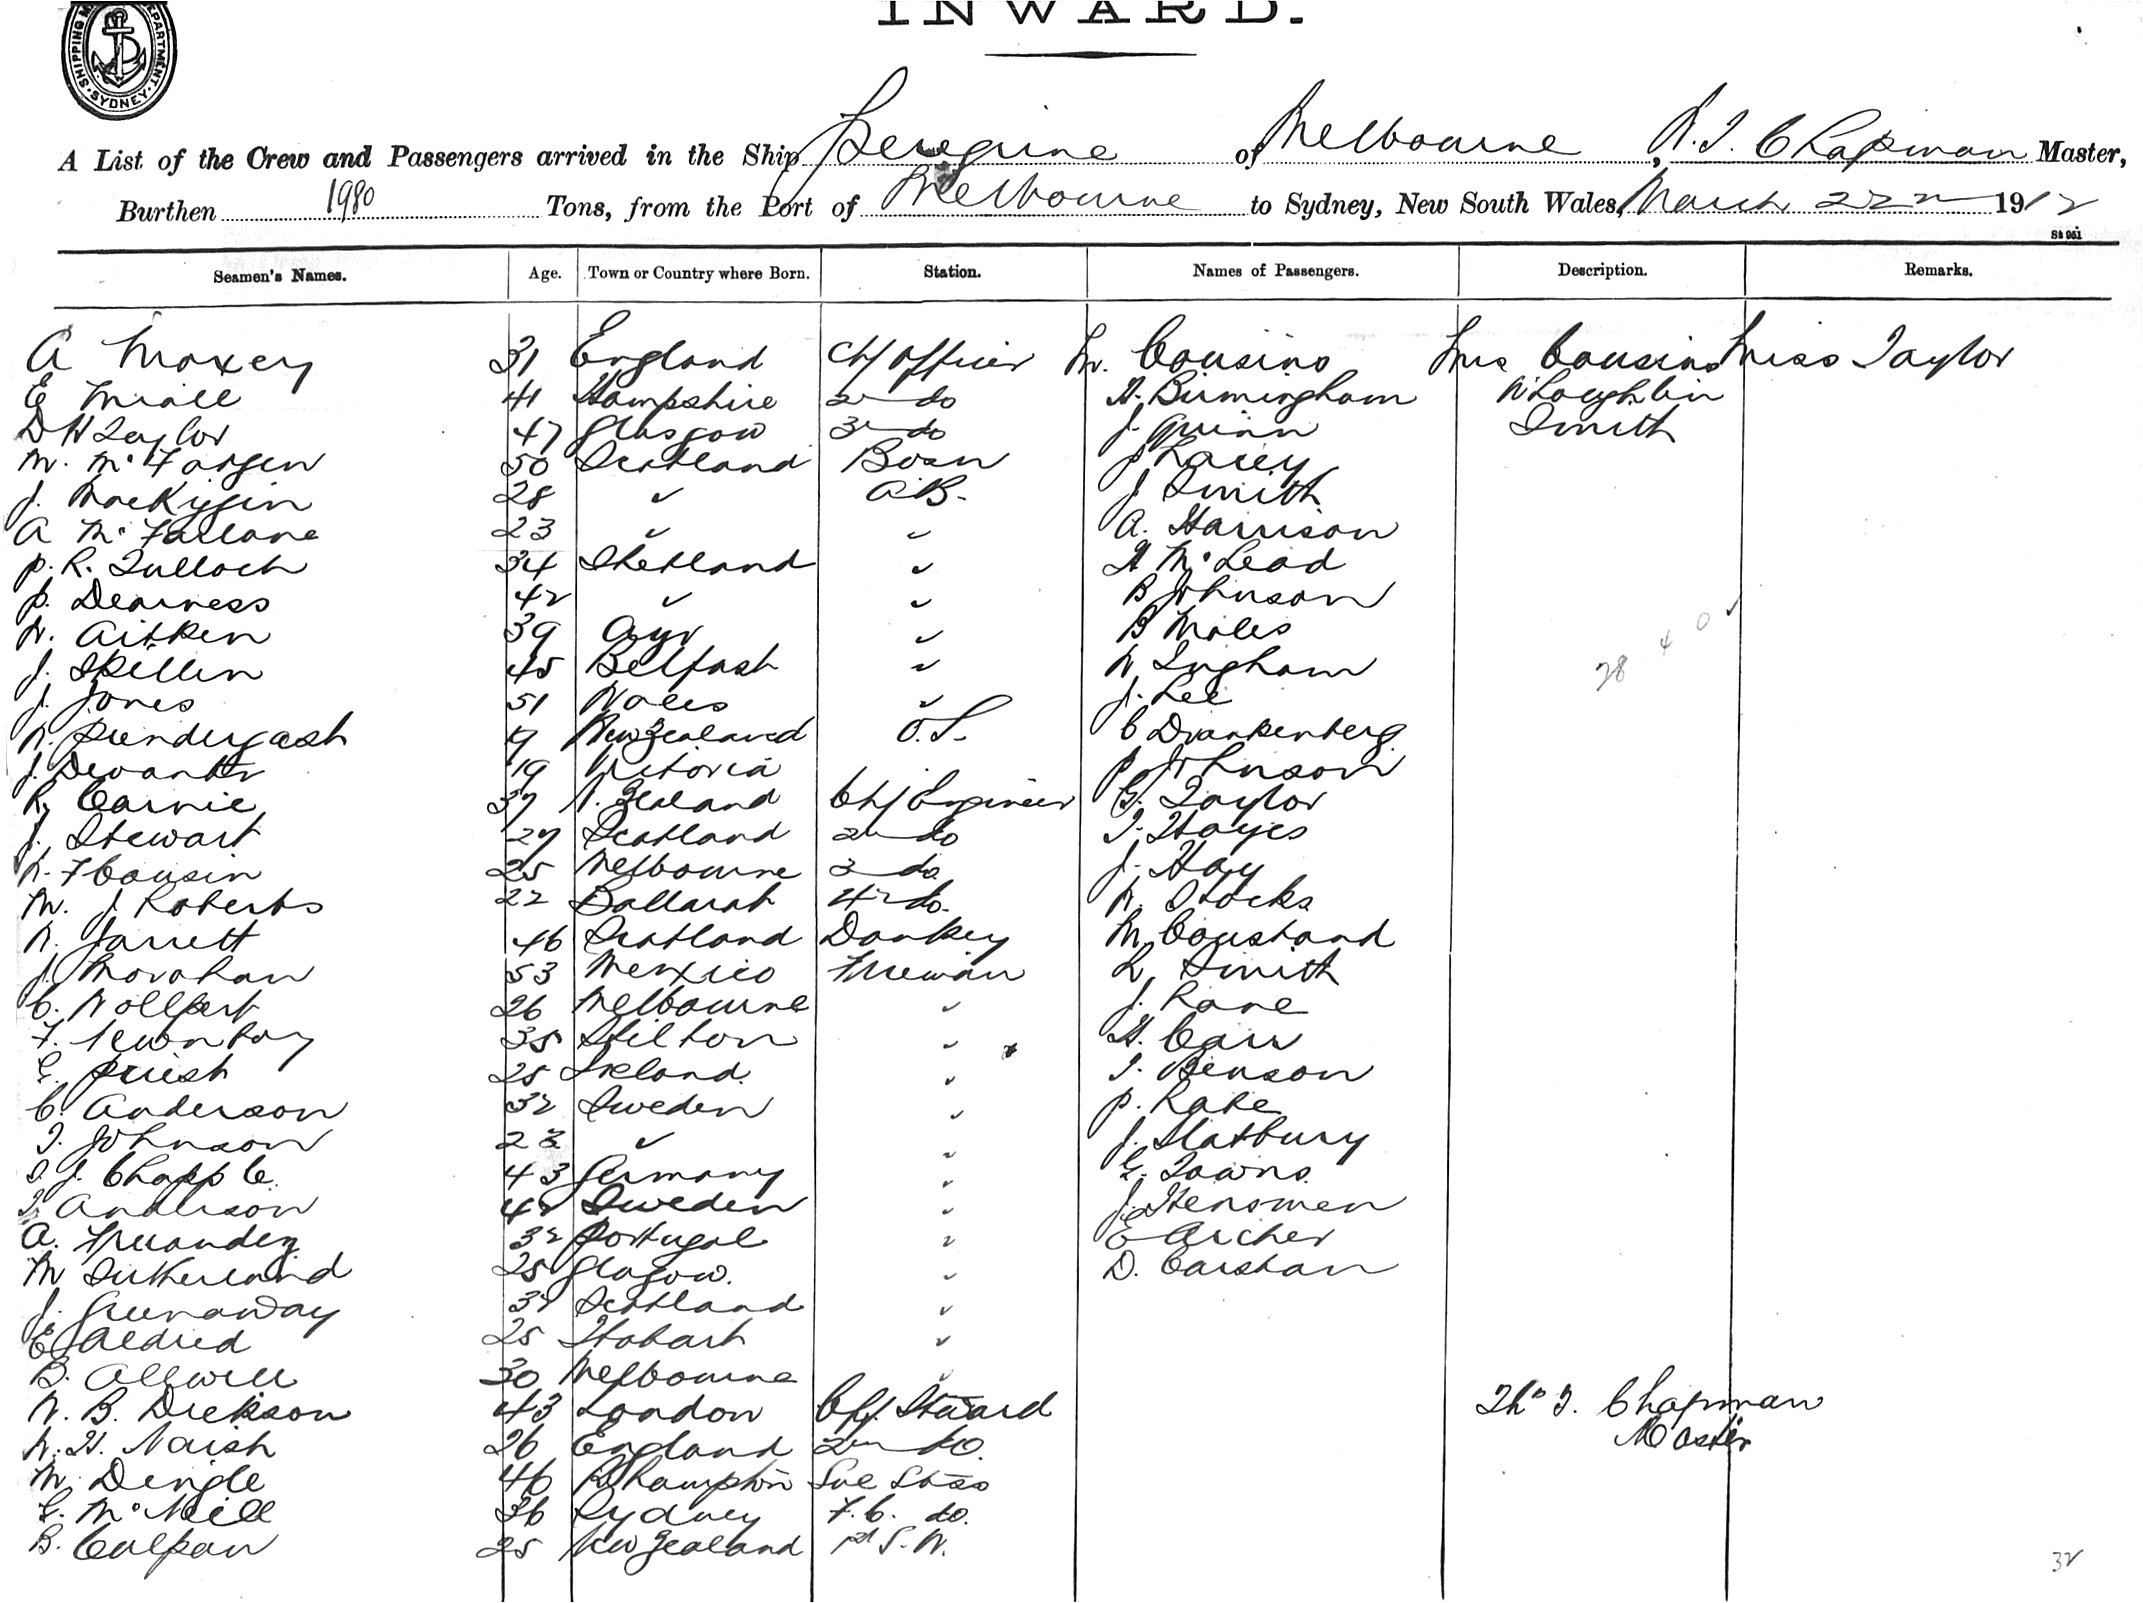 INWARD.
SHIPPING DEPARTMENT SYDNEY
A List of the Crew and Passengers arrived in the Ship Peregrine of Melbourne, Chapman Master,
Burthen 1980 Tons, from the Port of Melbourne to Sydney, New South Wales, March 22nd 1912
St 951
Seamen's Names. Age. Town or Country where Born. Station. Names of Passengers. Description. Remarks.
A Moxey 31 England Chf Officer Mr. Cousins Mrs Cousins Miss Taylor
E Miall 41 Hampshire 2nd do H. Birmingham W Loughlin
D H Taylor 47 Glasgow 3rd do J. Quinn Smith
M. 50 Scotland Bosn J Lacey
J. 28 " A.B. J Smith
A McFarlane 23 " " A. Harrison
P. R. Tulloch 34 Shetland " H McLeod
J. Dearness 42 " " B Johnson
W. Aitken 39 Ayr " B Moles
J. Skillin 45 Belfast " W Ingham
J. Jones 51 Wales " J. Lee
W. Prendergash 17 New Zealand O.S. C Drankenberg
J. 19 Victoria P. Johnson
R. Cairnie 37 N. Zealand Chf Engineer G. Taylor
J. Stewart 27 Scotland 2nd do T. Hayes
W. F Cousin 25 Melbourne 3 do J. Hay
M. J. Roberts 22 Ballarat 4th do. W. Stocks
W. Jarrett 46 Scotland Donkey M. Coustand
J. Monohan 53 Mexico Fireman L. Smith
C. Wollpert 26 Melbourne " J. Lane
F. Newnboy 35 Stilton " H. Carr
G. Priest 25 Ireland. " T. Benson
C. Anderson 32 Sweden " P. Lake
T. Johnson 23 " " J. Slatbury
T. J. Chapple 43 Germany " G. Towns
T Anderson 42 Sweden " J. Hensmen
A. 32 Portugal " E Archer
M Sutherland 25 Glasgow. " D. Carshan
J. Greenaway 32 Scotland "
E Aldred 25 Hobart "
B. Allwell 30 Melbourne "
W. B. Dickson 43 London Chf. Steward Ths T. Chapman
W. H. Naish 26 England 2nd do. Master
M. Dingle 46 Rkhampton Stss
G. McNeill 26 Sydney F. C. do.
B. Culpan 25 New Zealand S. W.
28 4 0
32